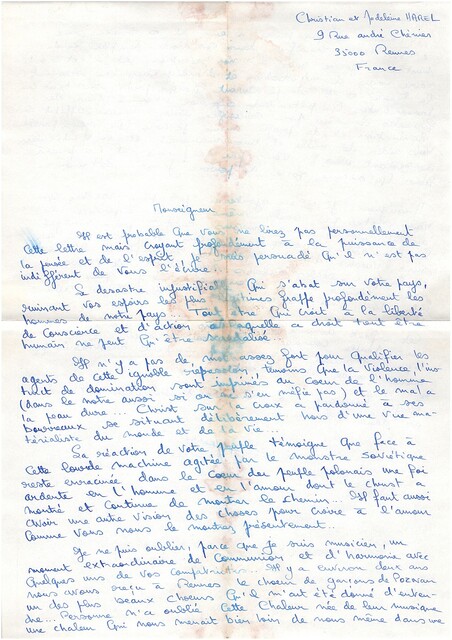 Christian et Madeleine HAREL
9 Rue andré Chénier
35000 Rennes
France
Monseigneur
Il est probable que vous ne lirez pas personnellement
cette lettre mais croyant profondément à la puissance de
la pensée et de l'esprit, je suis persuadé Qu'il n'est pas
indifférent de vous l'écrire.
Le désastre injustifiable Qui s'abat sur votre pays,
ruinant vos espoirs les plus légitimes frappe profondément les
hommes de notre pays. Tout être Qui croit à la liberté
de Conscience et d'action à laquelle a droit tout être
humain ne peut Qu'être
Il n'y a pas de mot assez fort pour Qualifier les
agents de cette ignoble répression, Que la violence, l'ins
tinct de domination sont imprimés au Coeur de l'homme
(dans le notre aussi si on ne s'en méfie pas) et le mal a
la peau dure... Christ sur la croix a pardonné à ses
bourreaux se situant délibérément hors d'une vue ma-
térialiste du monde et de la Vie...
La réaction de votre peuple témoigne Que face à
Cette lourde machine agitée par le monstre soviétique
reste enracinée dans le Coeur du peuple polonais une foi
ardente en l'homme et en l'amour dont le christ a
montré et continue de montrer le chemin... Il faut aussi
avoir une autre vision des choses pour croire à l'amour
Comme vous nous le montrez présentement...
Je ne puis oublier, parce que je suis musicien, un
moment extraordinaire de Communion et d'harmonie avec
Quelques uns de vos Compatriotes... Il y a environ deux ans
nous avons reçu à Rennes le choeur de garçons de Poznan
un des plus beaux Choeurs Qu'il m'ait été donné d'enten-
dre... Personne n'a oublié Cette Chaleur née de leur musique
une chaleur Qui nous menait bien loin de nous même dans une